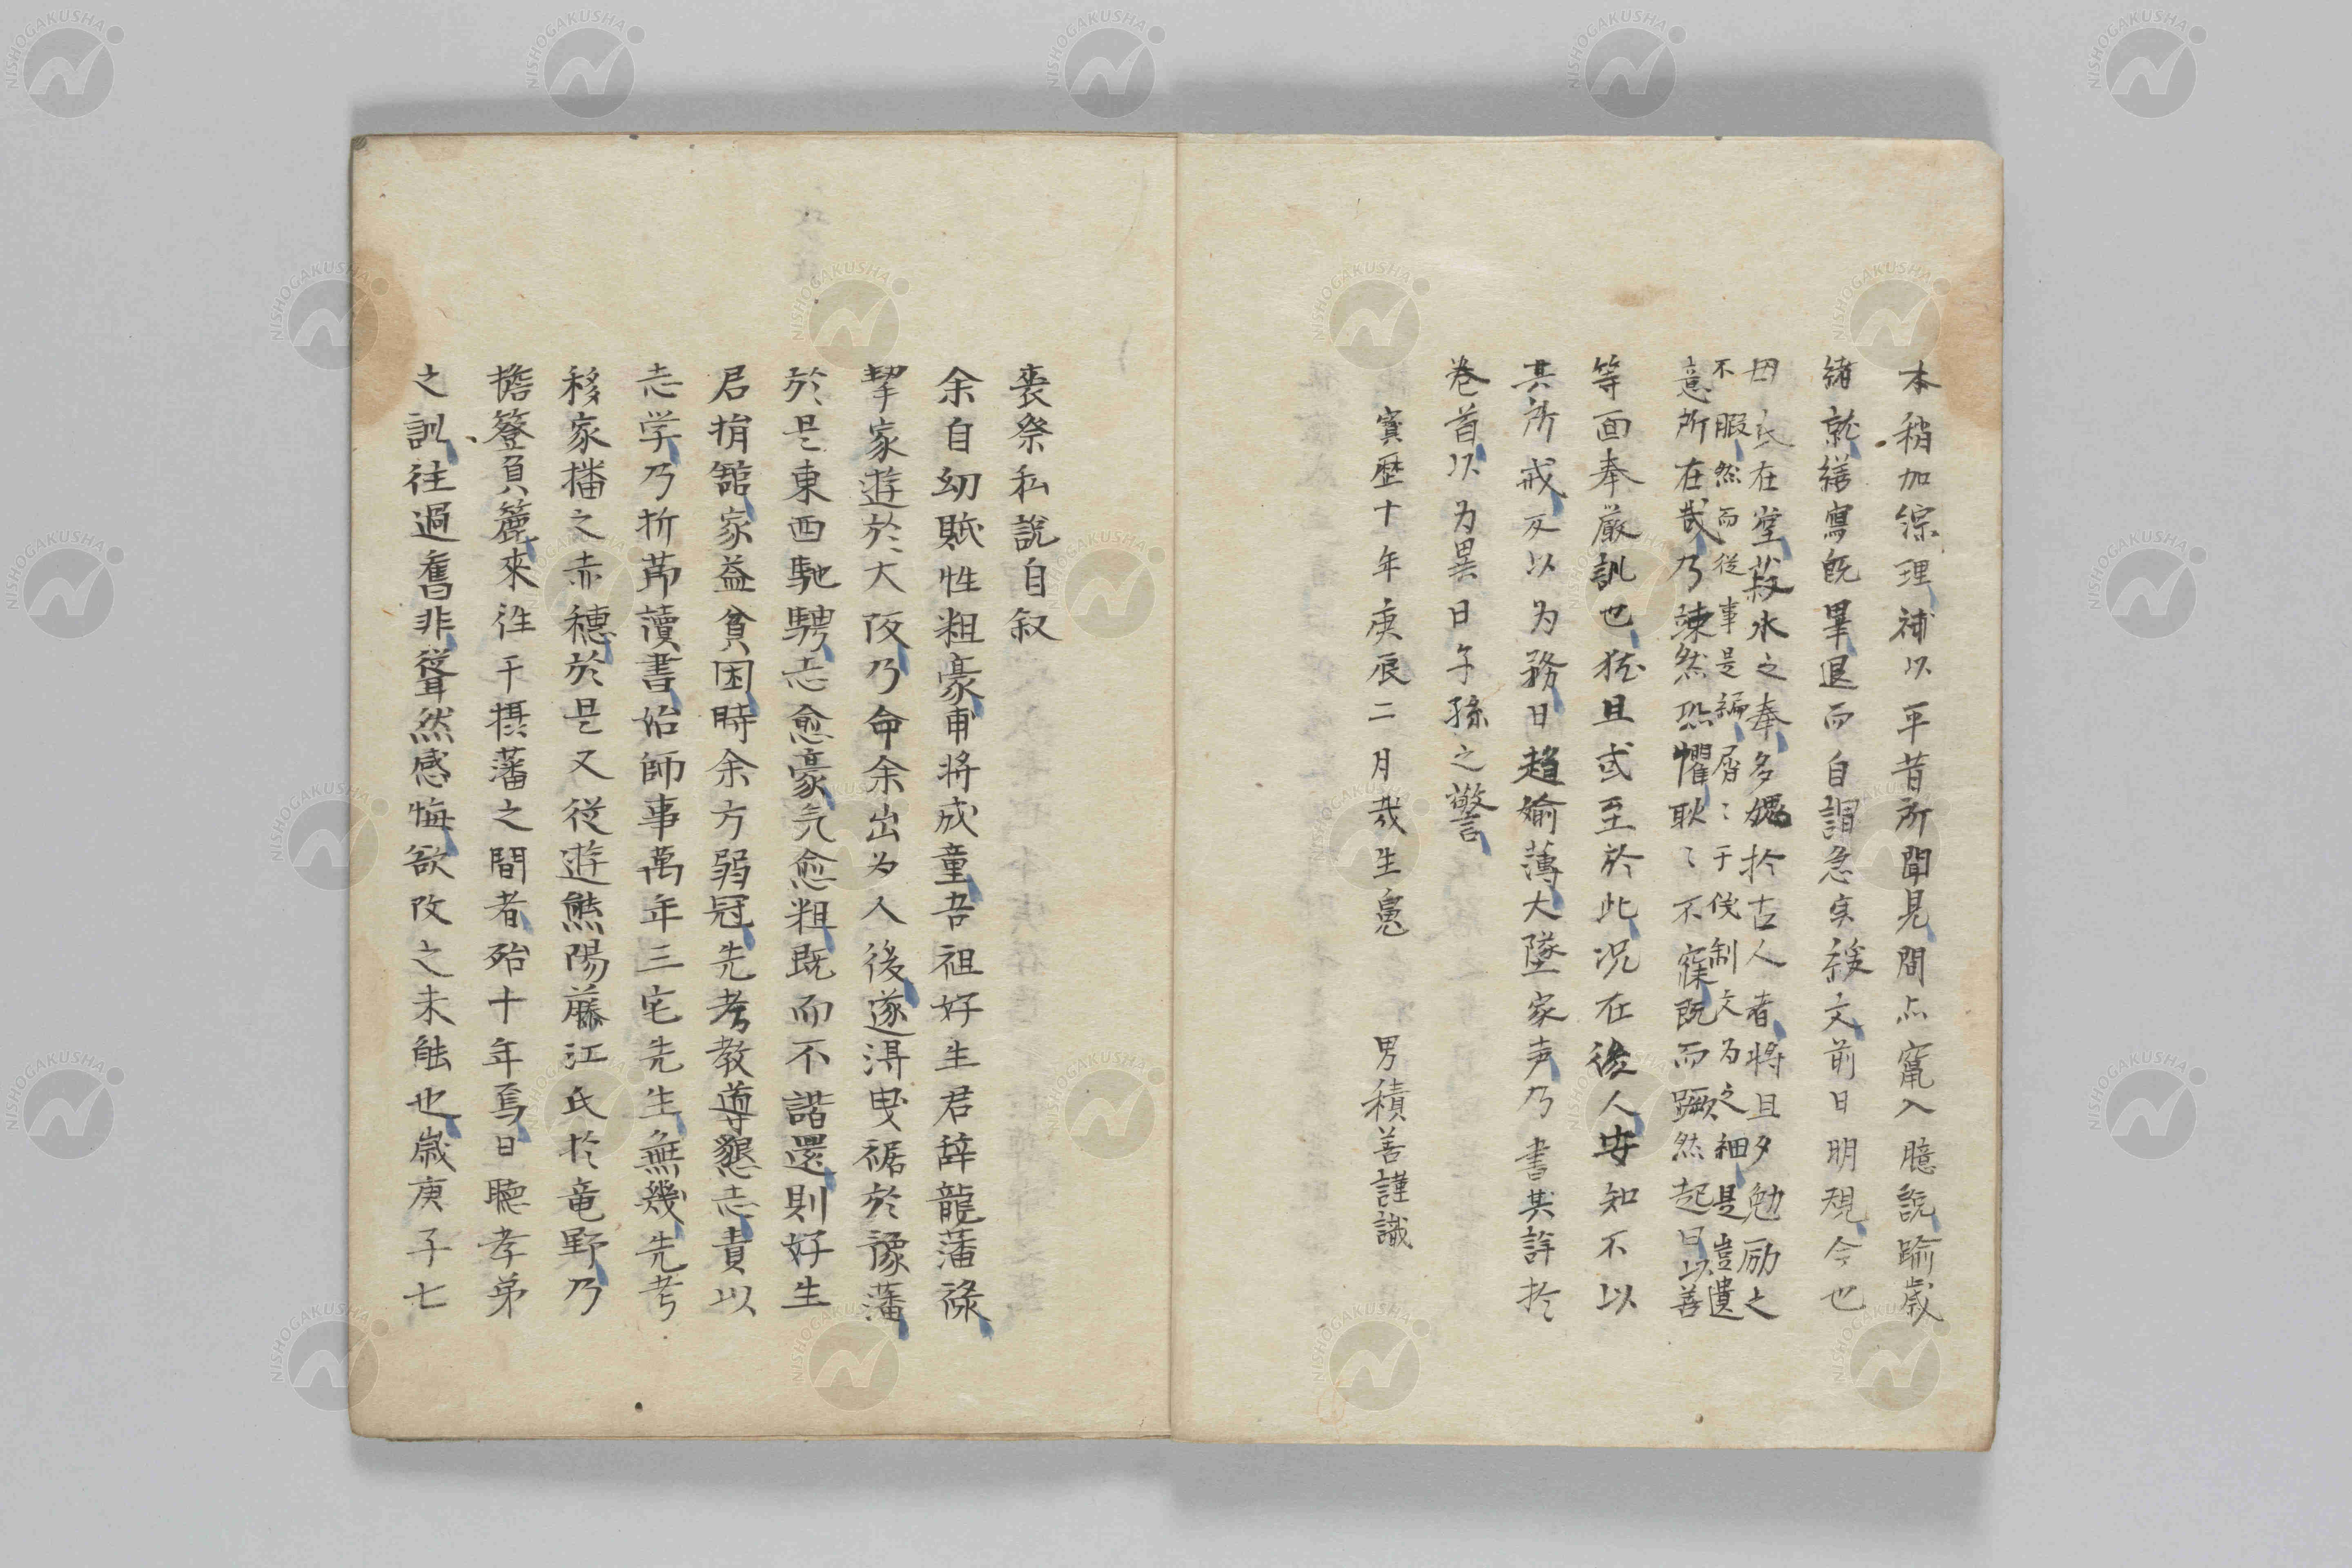 本稍加綜理補以平昔所聞見間亦竄入臆説踰歳
緒就繕寫既畢退而自謂急実緩文前日明規今也
因氏在堂菽水之奉多媿於古人者将且夕勉励之
不暇然而従事是編屑〻于儀制文為之細是豈遺
意所在哉乃竦然恐懼耿〻不寐既而蹶然起曰以善
等面奉厳訓也猶且或至於此况在後人安知不以
其所戒反以为務日趨媮薄大墜家声乃書其詳於
巻首以为異日子孫之警
寳歴十年庚辰二月哉生魄　男積善謹識
喪祭私說自叙
余自幼賦性粗豪甫将成童吾祖好生君辞龍藩禄
挈家遊於大阪乃命余出为人後遂得曳裾於豫藩
於是東西馳騁志愈豪気愈粗既而不諧還則好生
君捐舘家益貧困時余方弱冠先考教導懇志責以
志学乃折節讀書始師事萬年三宅先生無幾先考
移家播之赤穗於是又従遊熊陽藤江氏於竜野乃
擔簦負簏來往干摂藩之間者殆十年焉日聴孝弟
之訓往過舊非聳然感悔欲改之未能也歳庚子七
NISHOGAKUSHA